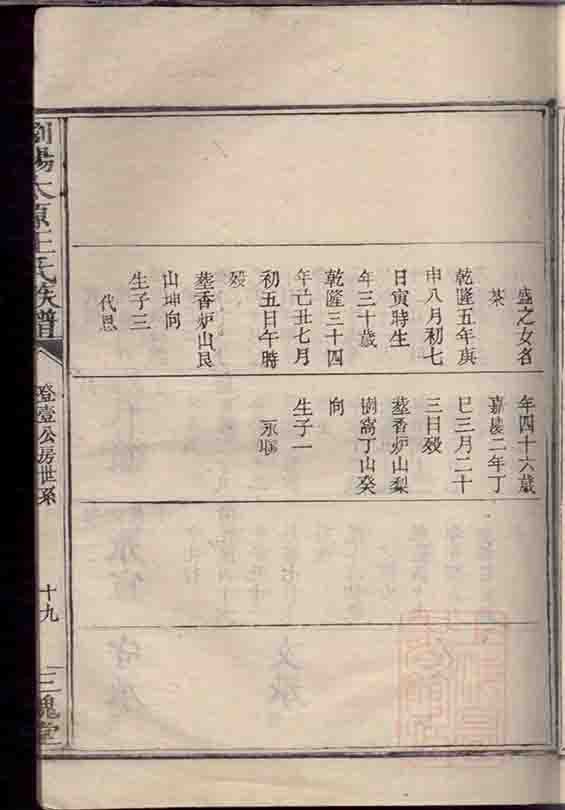 盛之女名
茶
乾隆五年庚
申八月初七
日寅時生
年三十歲
乾隆三十四
年己丑七月
初五日午時
歿
塟香炉山艮
山坤向
生子三
代恩
年四十六歲
嘉慶二年丁
巳三月二十
三日歿
塟香炉山梨
樹窩丁山癸
向
生子一
永
瀏陽太原王氏族譜
登壹公房世系
十九
三槐堂